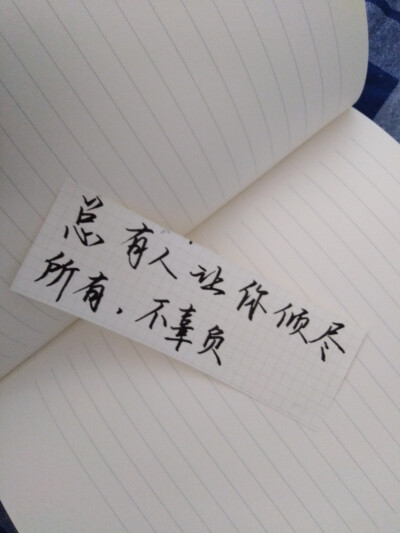 总有人让你倾尽
所有，不辜负